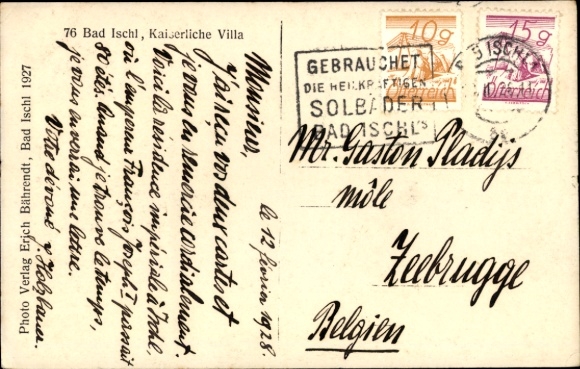 76 Bad Ischl, Kaiserliche Villa
le 12 février 1928.
Monsieur,
J'ai reçu vos deux cartes et
je vous en remercie cordialement.
Voici la résidence impériale à Ischl,
où l'empereur François Joseph I passait
80 étés. Quand je trouve le temps,
je vous enverrai une lettre.
Votre dévoué J. Holzbauer.
Photo Verlag Erich Bährendt, Bad Ischl 1927
10 g
Österreich
15 g
Österreich
GEBRAUCHET
DIE HEILKRÄFTIGEN
SOLBÄDER
BAD ISCHL'S
BAD ISCHL
Mr. Gaston Pladijs
môle
Zeebrugge
Belgien